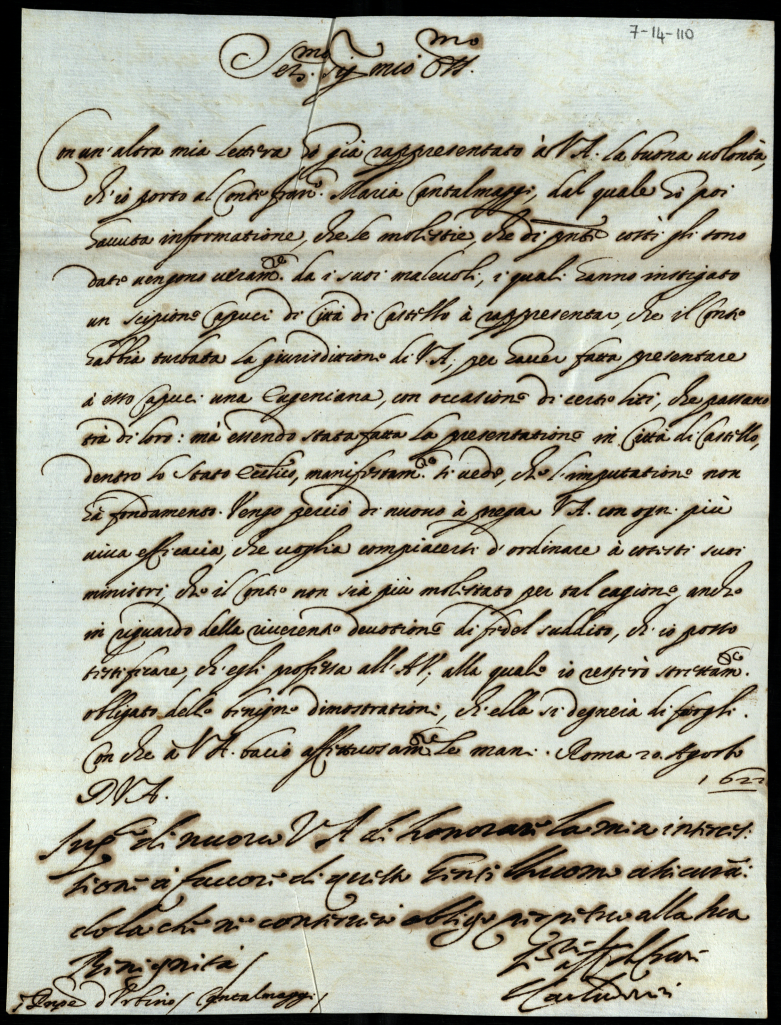 7-14-110
Ser.mo Sig.r mio Oss.mo
Con un'altra mia lettera hò già rappresentato à V.A. la buona volontà,
ch'io porto al Conte Fran.co Maria Cantalmaggi, dal quale hò poi
havuta informatione, che le molestie, che di pnte costì gli sono
date vengono veram.te da i suoi malevoli, i quali hanno instigato
un Scipione Capuci di Città di Castello à rappresentar, che il Conte
habbia turbata la giurisditione di V.A., per haver fatta presentare
à esso Capuci una Eugeniana, con occasione di certe liti, che passano
trà di loro: mà essendo stata fatta la presentatione in Città di Castello,
dentro lo Stato Eccl.ico, manifestam.te si vede, che l'imputatione non
hà fondamento. Vengo perciò di nuovo à pregar V.A. con ogni più
viva efficacia, che voglia compiacersi d'ordinare à cotesti suoi
ministri, che il Conte non sia più molestato per tal cagione, anche
in riguardo della riverente devotione di fedel suddito, ch'io posso
testificare, ch'egli professa all'A.V., alla quale io resterò strettam.te
obligato delle benigne dimostrationi, ch'ella si degnerà di fargli.
Con che à V.A. bacio affettuosam.te le mani. Roma 20 Agosto
1622
D.V.A.
Sup.co di nuovo V A di honorare la mia interces
sione à favore di questo Gentilhuomo assicuran
dola che ne conserverò obligo perpetuo alla sua
Benignità
S. Prnpe d'Urbino / Cantalmaggi /